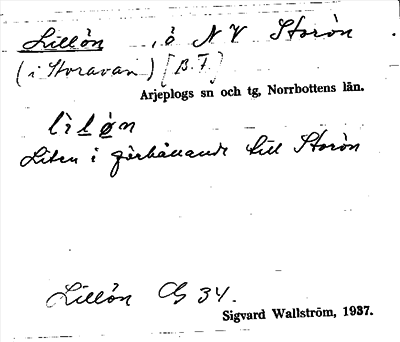 Lillön , ö NV Storön .
(i Storavan) [B.T.]
Arjeplogs sn och tg, Norrbottens län.
lìlǿn
Liten i förhållande till Storön
Lillön GS 34.
Sigvard Wallström, 1937.